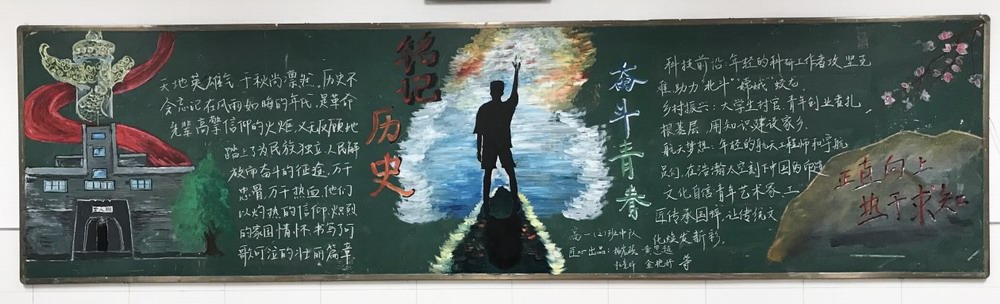 天地英雄气 千秋尚凛然。历史不
会忘记 在风雨如晦的年代，是革命
先辈高擎信仰的火炬，义无反顾地
踏上了为民族独立、人民解
放而奋斗的征途。万千
忠骨，万千热血，他们
以灼热的信仰，炽烈
的家国情怀，书写了可
歌可泣的壮丽篇章
铭记
历史
奋斗青春
科技前沿：年轻的科研工作者攻坚克
难，助力“北斗”“嫦娥”“蛟龙
乡村振兴：大学生村官、青年创业者扎
根基层，用知识建设家乡。
航天梦想：年轻的航天工程师和宇航
员们，在浩瀚太空刻下中国的印迹
文化自信：青年艺术家、工
匠传承国粹，让传统文
化焕发新彩。
高一(2)班中队
匠心出品：
等
正直向上
热于求知